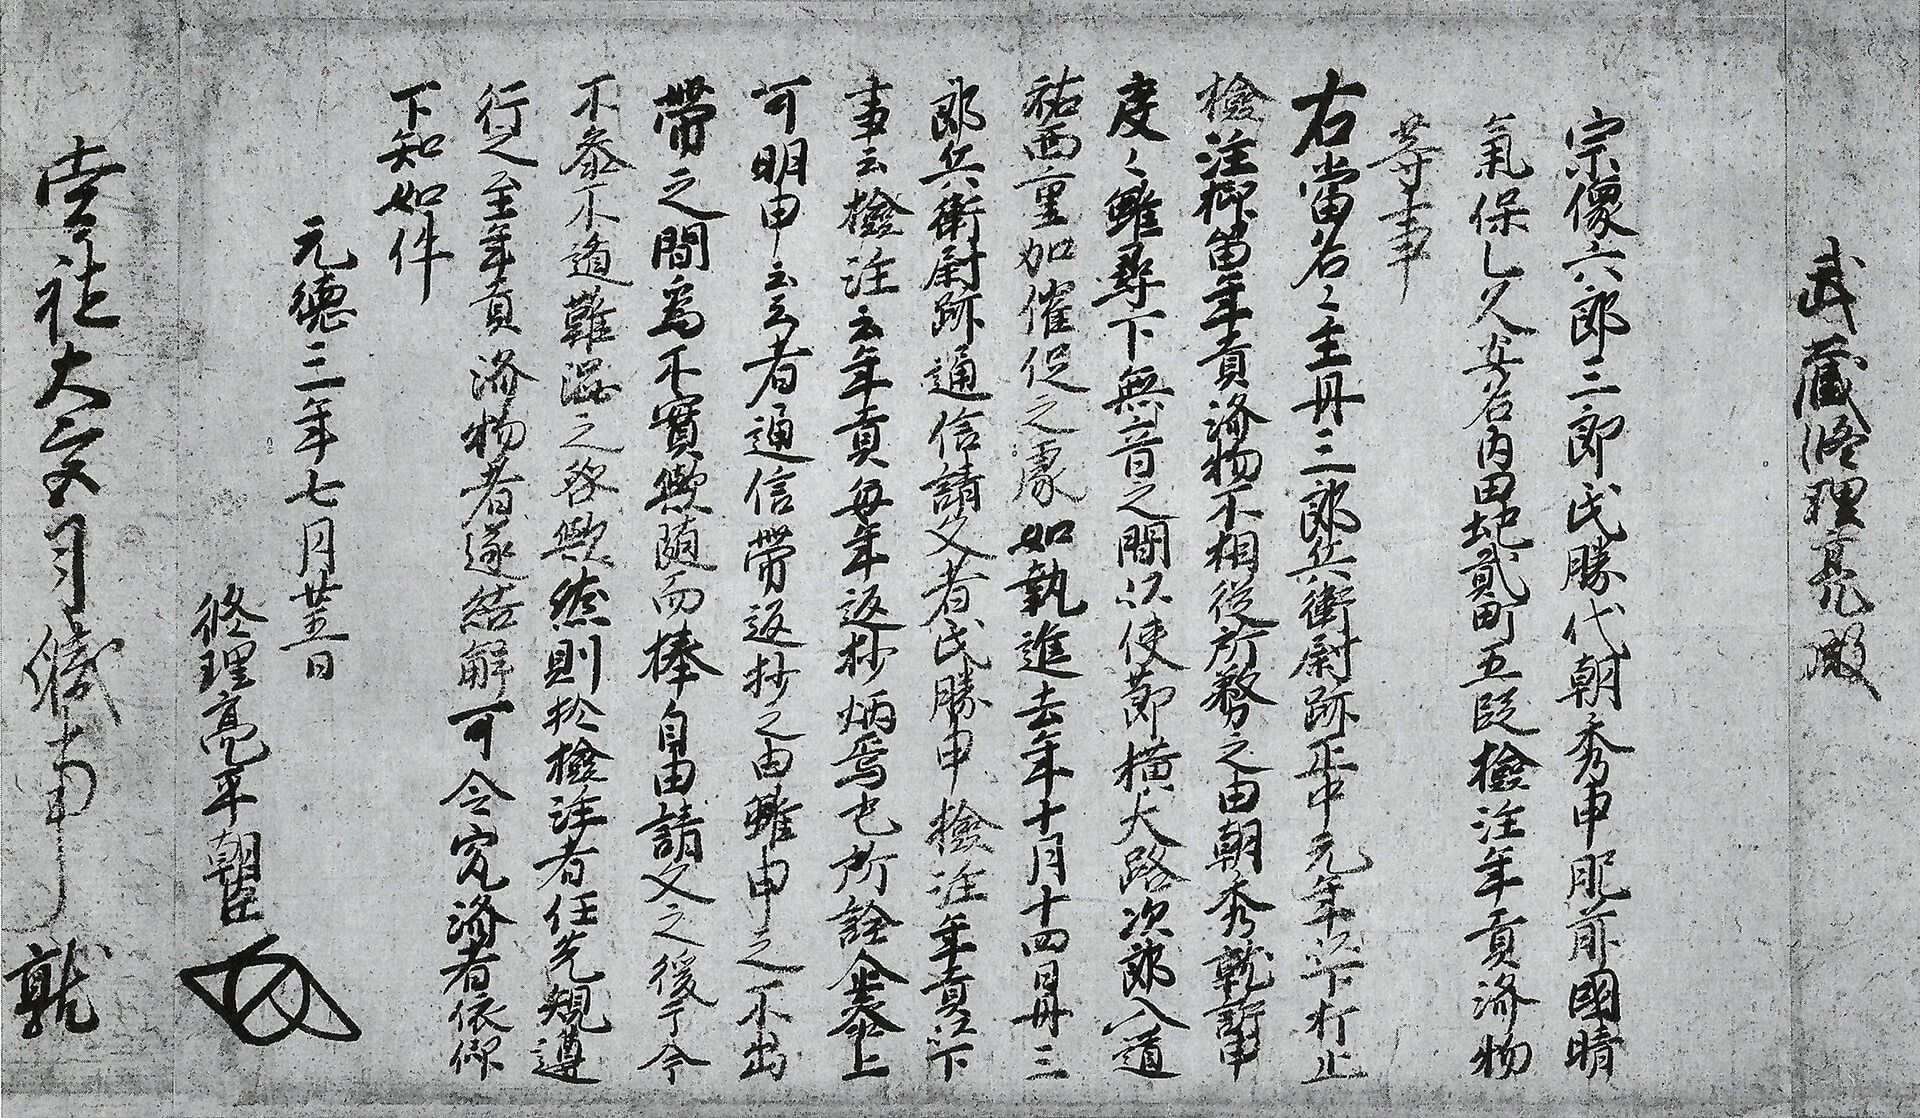 武蔵修理亮殿
宗像六郎三郎氏勝代朝秀申肥前國晴
氣保乙久安名内田地貳町五段検注年貢済物
等事
右當名々主丹三郎兵衛尉跡正中元年以下打止
検注抑留年貢済物不相従所務之由朝秀就訴申
度々雖尋下無音之間以使節横大路次郎入道
祐西重加催促之處如執進去年十月十四日丹三
郎兵衛尉跡通信請文者氏勝申検注年貢以下
事云検注云年貢毎年返抄炳焉也所詮企参上
可明申云々者通信帯返抄之由雖申之不出
帯之間為不實歟随而捧自由請文之後于今
不参不遁難渋之咎歟然則於検注者任先規遵
行之至年貢済物者遂結解可令究済者依仰
下知如件
元徳三年七月廿五日
修理亮平朝臣
雲
社大
司
申